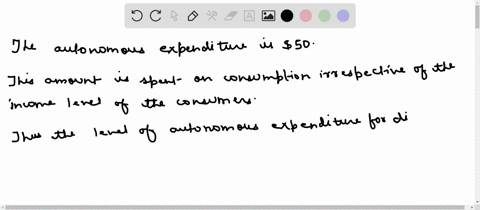 The autonomous expenditure is $50.
This amount is spent on consumption irrespective of the
income level of the consumers.
Thus the level of autonomous expenditure for di